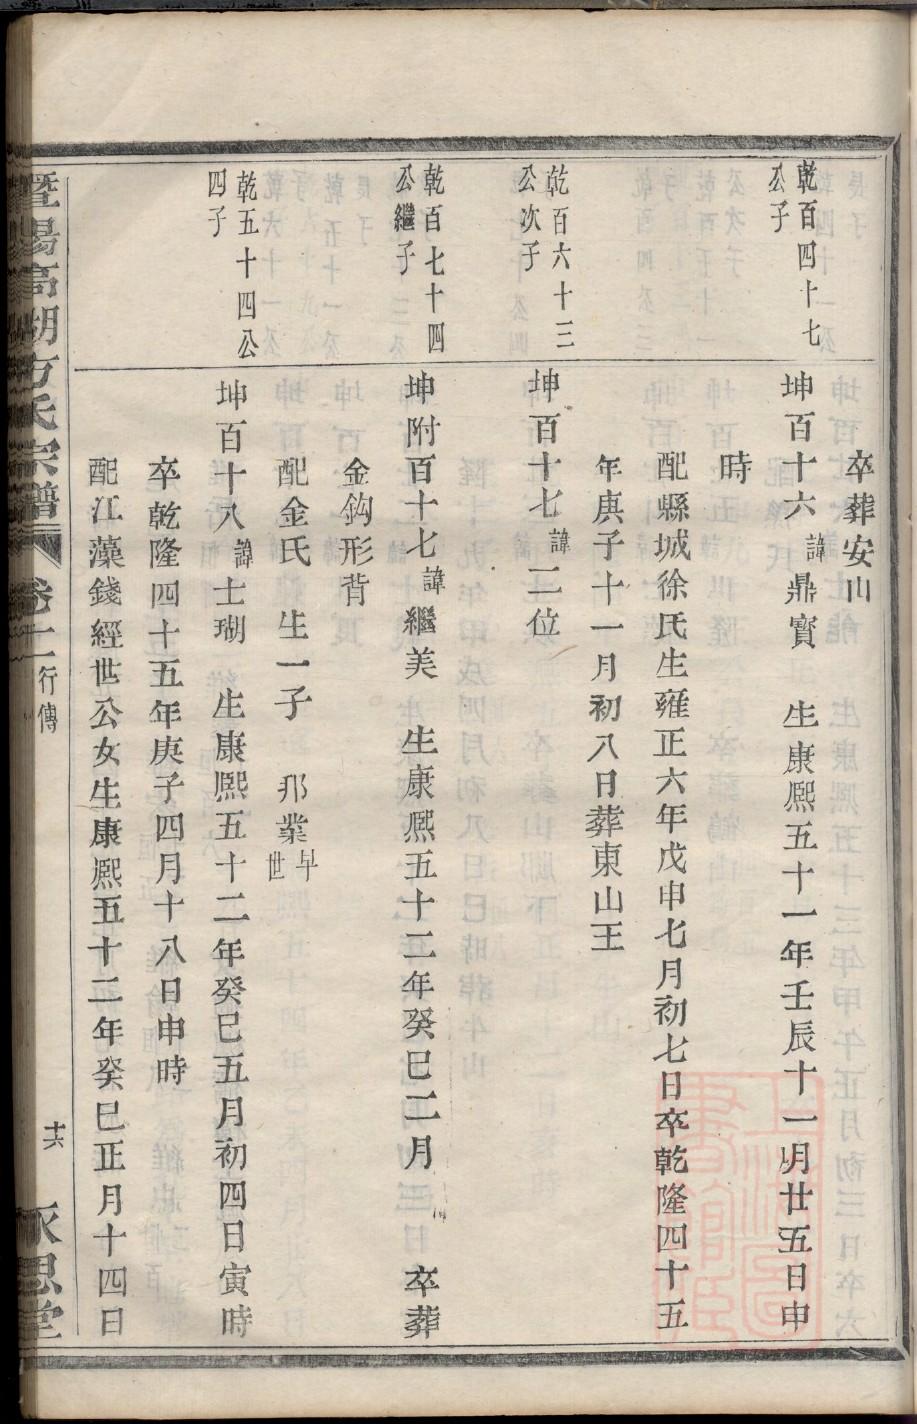 卒葬安山
乾百四十七
公子
坤百十六諱鼎寳 生康熈五十一年壬辰十一月廿五日申
時
配縣城徐氏生雍正六年戊申七月初七日卒乾隆四十五
年庚子十一月初八日葬東山王
乾百六十三
公次子
坤百十七諱三位
乾百七十四
公繼子
坤附百十七諱繼美 生康熈五十二年癸巳二月 卒葬
金鈎形背
配金氏 生一子 邦業早世
乾五十四公
四子
坤百十八諱士瑚 生康熙五十二年癸巳五月初四日寅時
卒乾隆四十五年庚子四月十八日申時
配江藻錢經世公女生康熈五十二年癸巳正月十四日
暨陽高湖方氏宗譜 卷 行傳 十六 永思堂